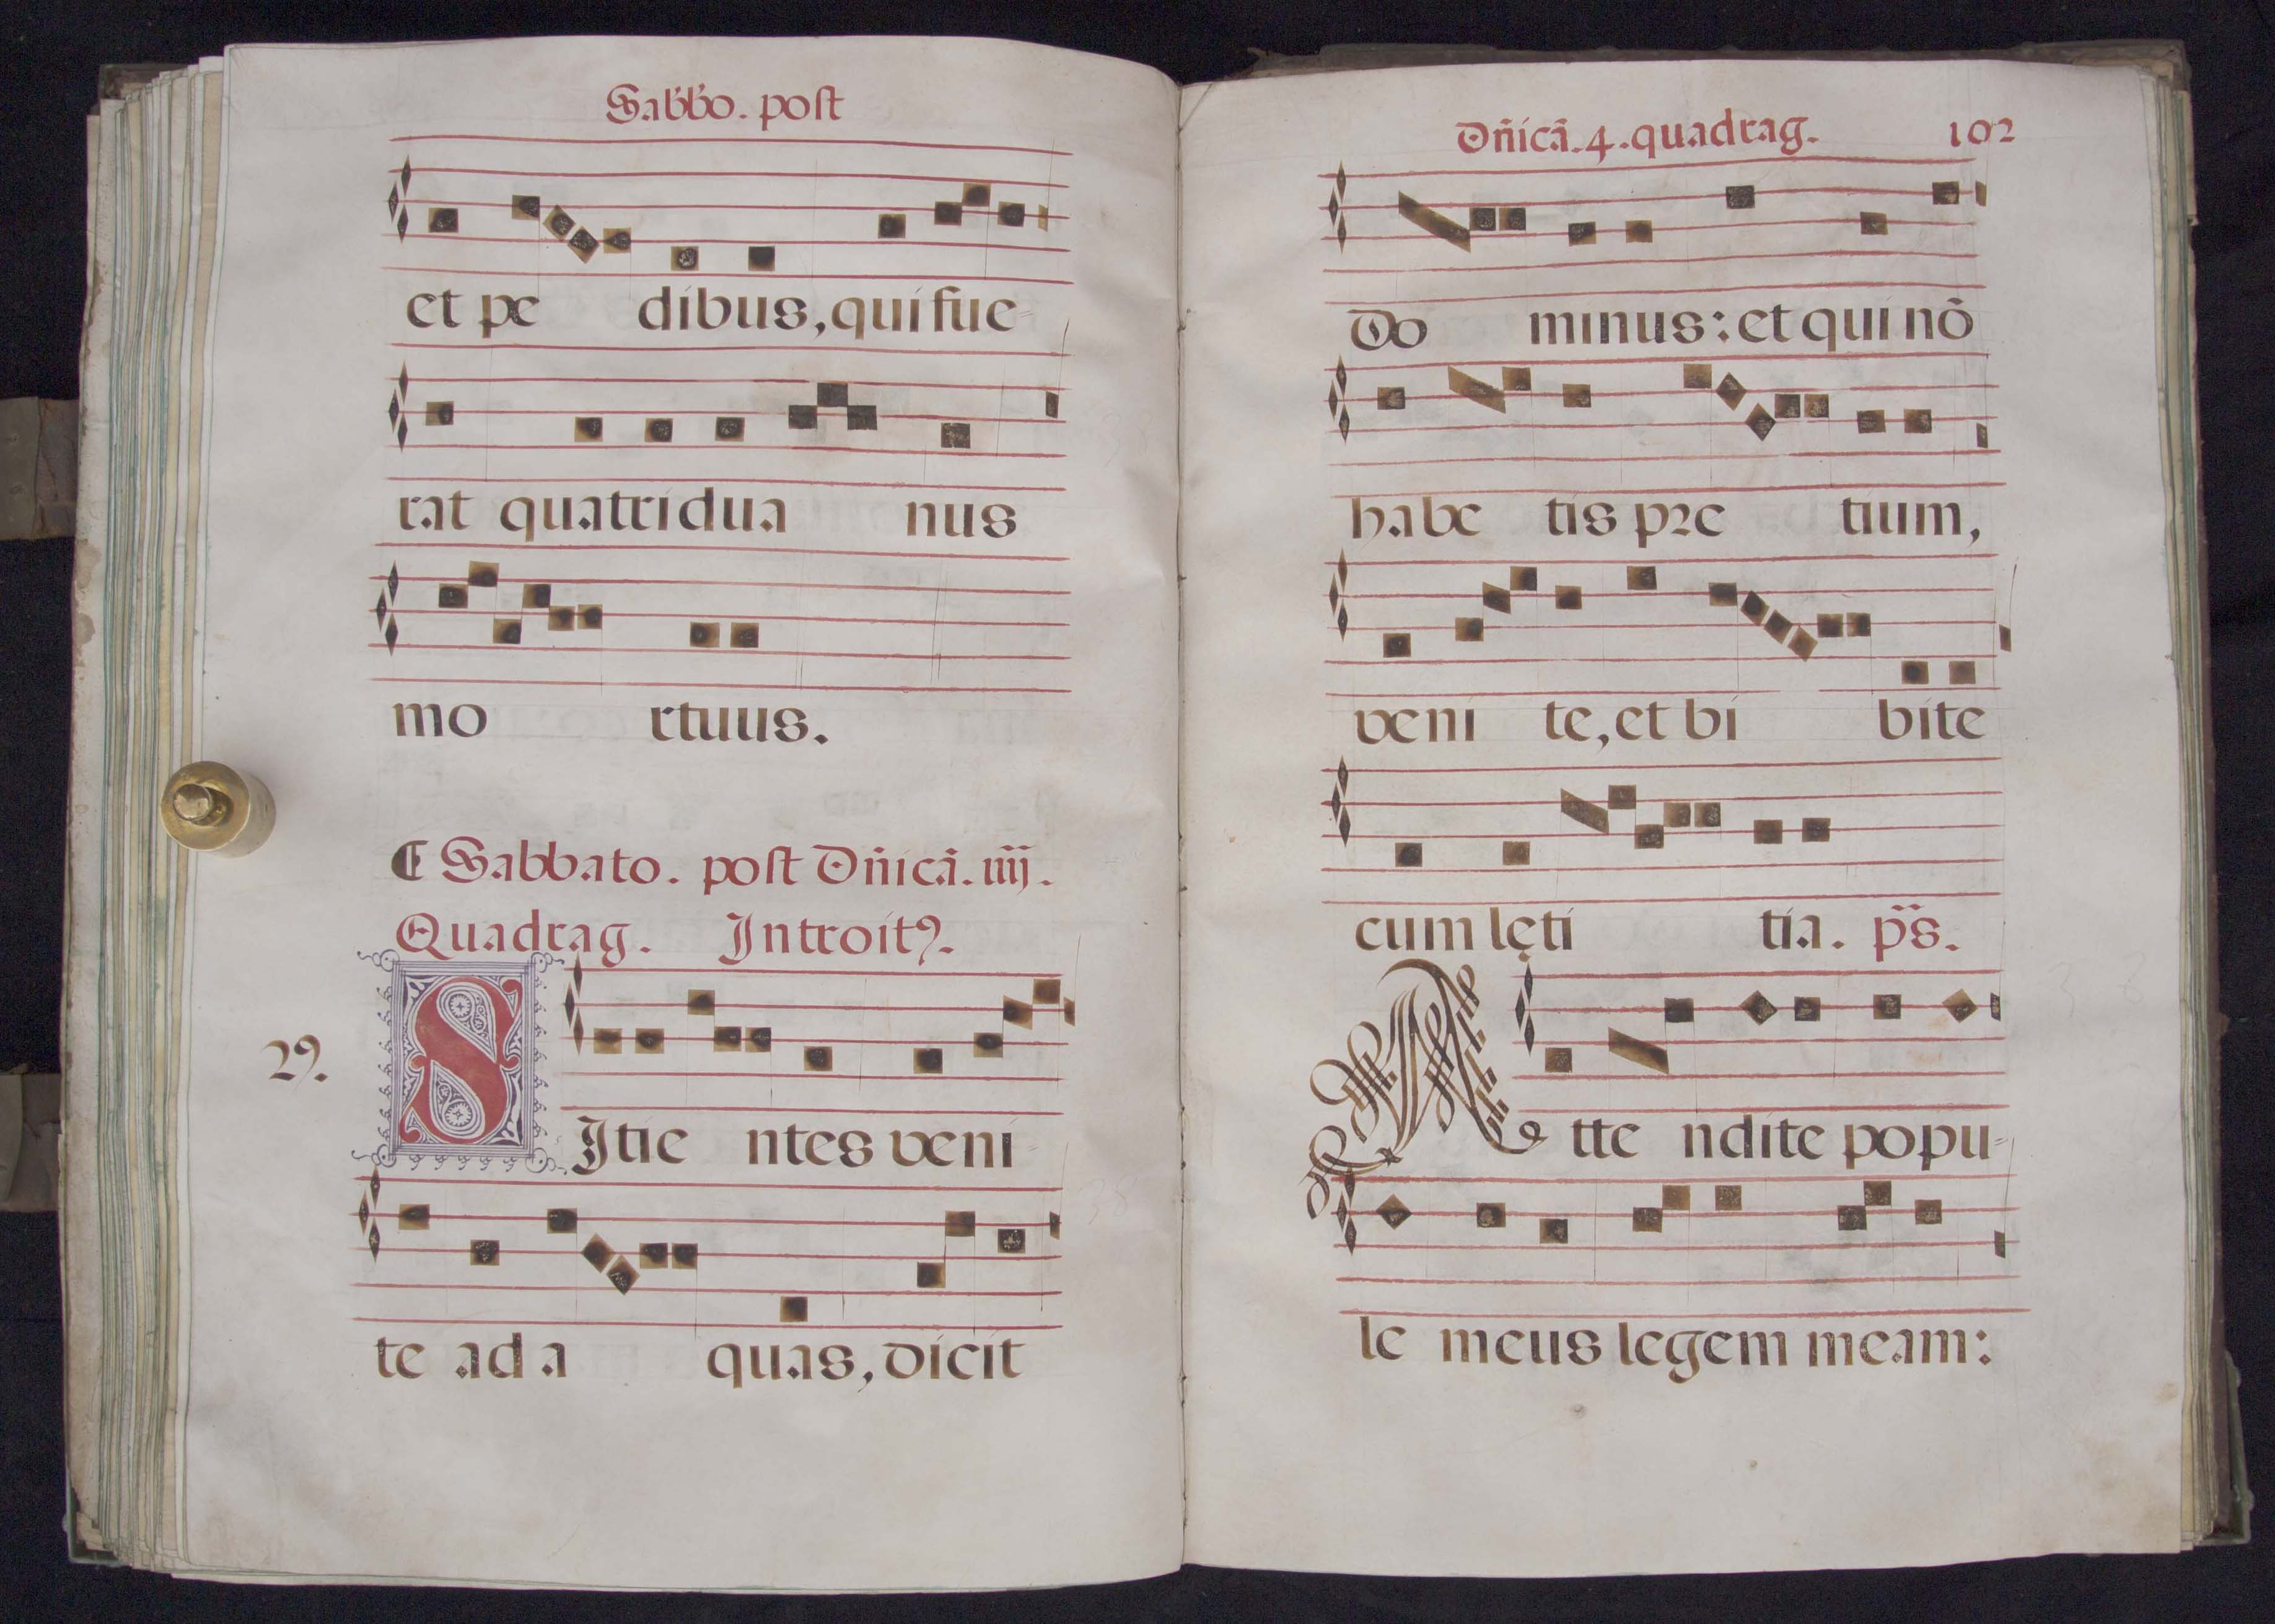 Sabbo. post
et pe dibus, qui fue-
rat quatridua nus
mo rtuus.
Sabbato. post Dñicā. iiij.
Quadrag. Introitꝰ.
29.
SItie ntes veni-
te ad a quas, dicit
Dñicā. 4. quadrag. 102
Do minus: et qui nō
habe tis pre tium,
veni te, et bi bite
cum lęti tia. ps.
Atte ndite popu-
le meus legem meam: